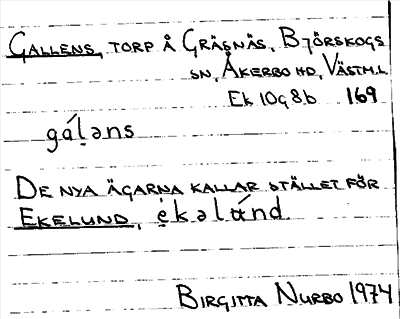 GALLENS, TORP Å GRÄSNÄS, BJÖRSKOGS
SN, ÅKERBO HD, VÄSTM.L
Ek 10g 8b 169
gáḷəns
DE NYA ÄGARNA KALLAR STÄLLET FÖR
EKELUND, ẹ̇kəlánd.
BIRGITTA NURBO 1974